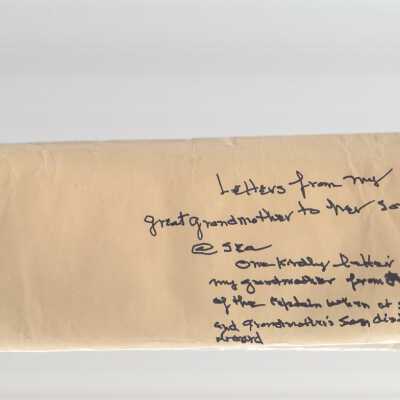 Letters from my
great grandmother to her so
@ sea
One kindly letter
my grandmother from
of the Captain when at s
and Grandmother's son di
aboard